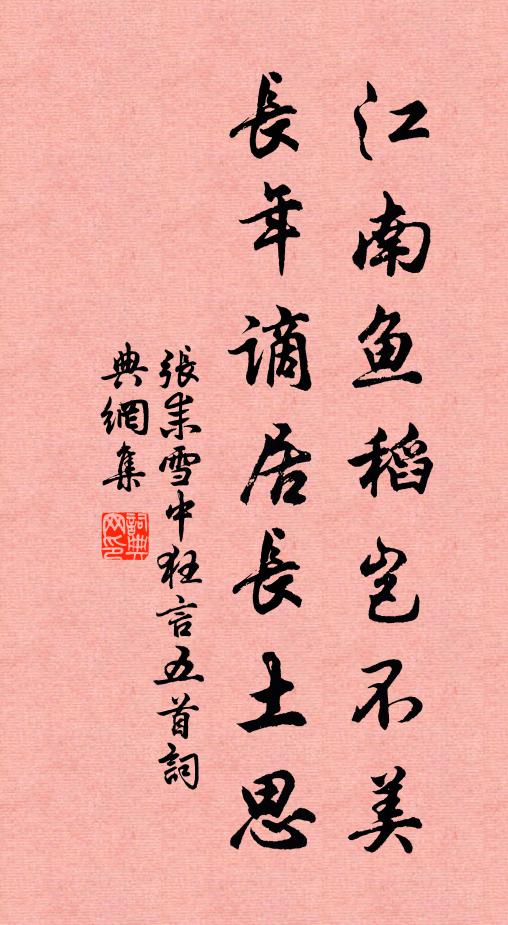 江南鱼稻岂不美
長年謫居長土思
張耒雪中狂言五首詞
典網集
詞典
网印